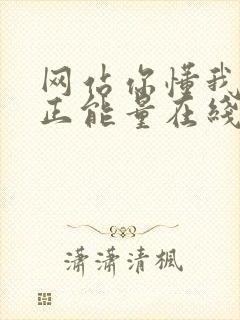 网站你懂我
正能量在线
潇潇清枫